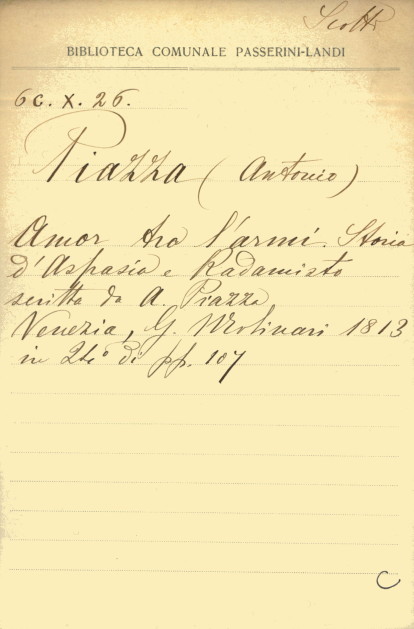 Scotti
BIBLIOTECA COMUNALE PASSERINI-LANDI
6C. X. 26.
Piazza (Antonio)
Amor tra l'armi. Storia
d'Aspasia e Radamisto
scritta da A. Piazza
Venezia, G. Molinari 1813
in 24º di pp. 107
C